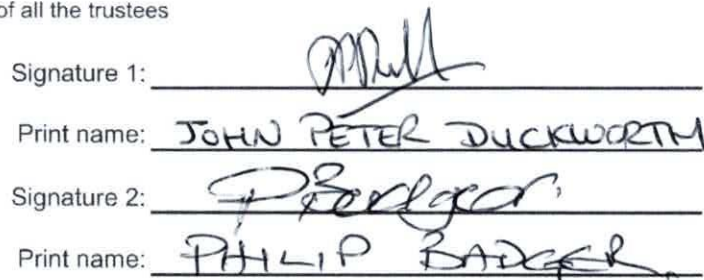 of all the trustees
Signature 1:
Print name: JOHN PETER DUCKWORTH
Signature 2: P Badger
Print name: PHILIP BADGER